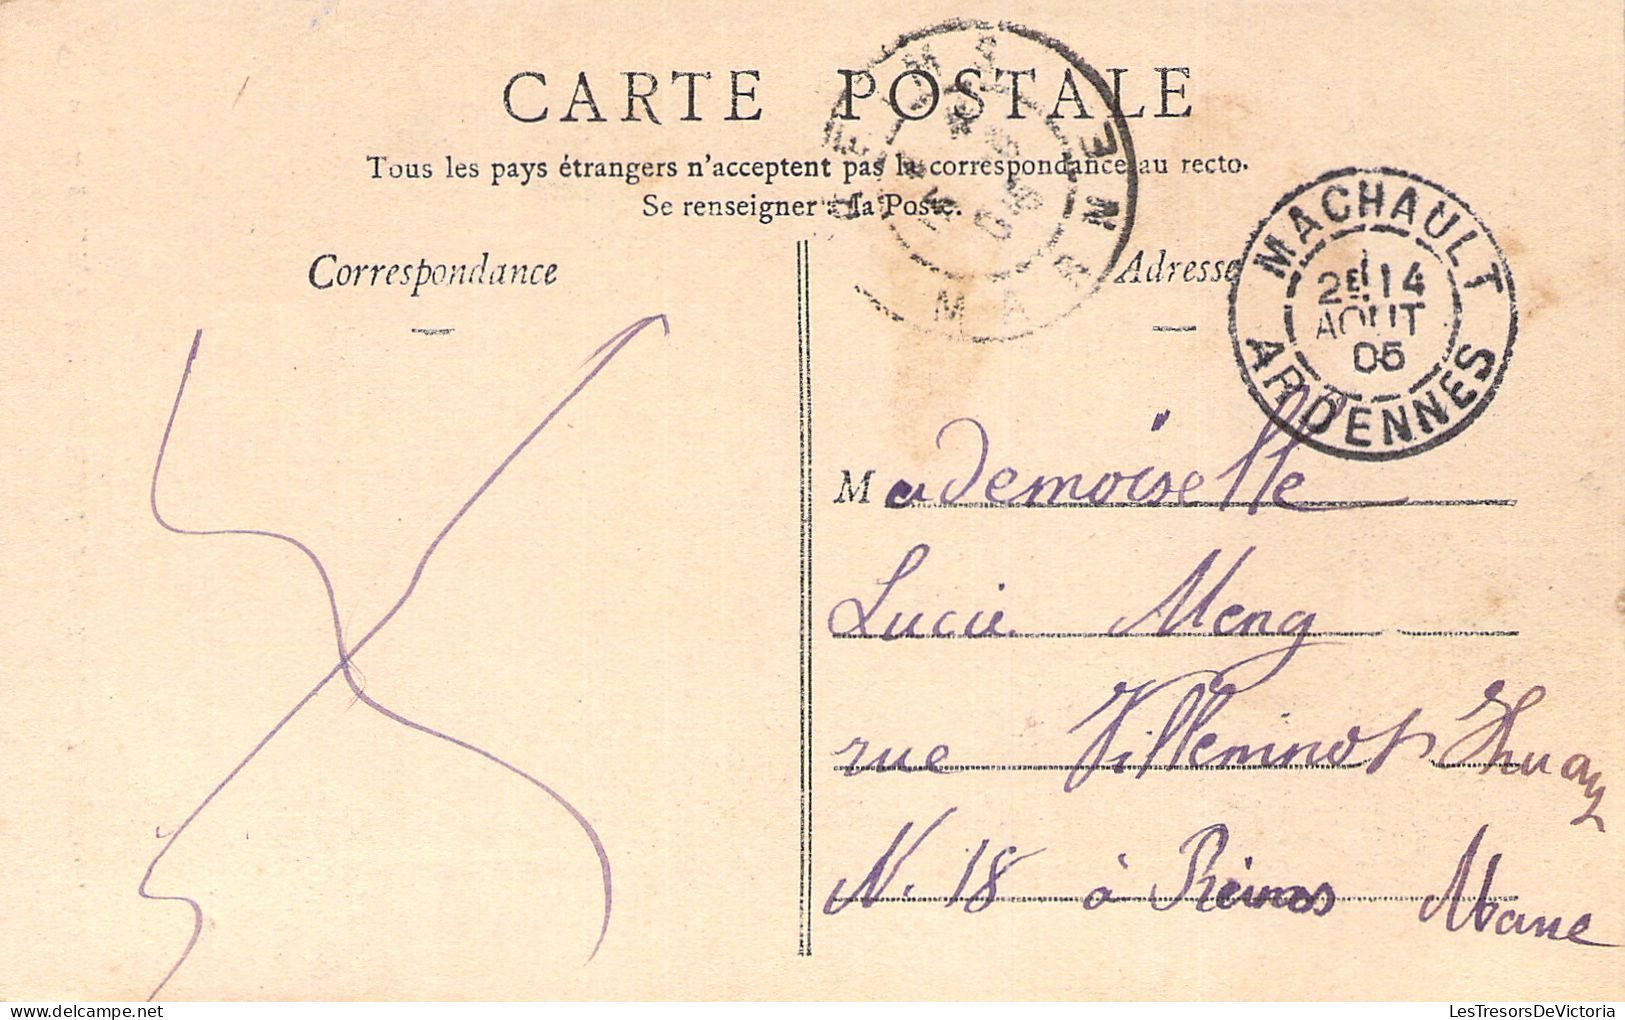 CARTE POSTALE
Tous les pays étrangers n'acceptent pas la correspondance au recto.
Se renseigner à la Poste.
Correspondance
Adresse
MARNE
MACHAULT
2E 14
AOUT
05
ARDENNES
Mademoiselle
Lucie Meng
rue Villeminot Huay
N. 18 à Reims Mane
LesTresorsDeVictoria